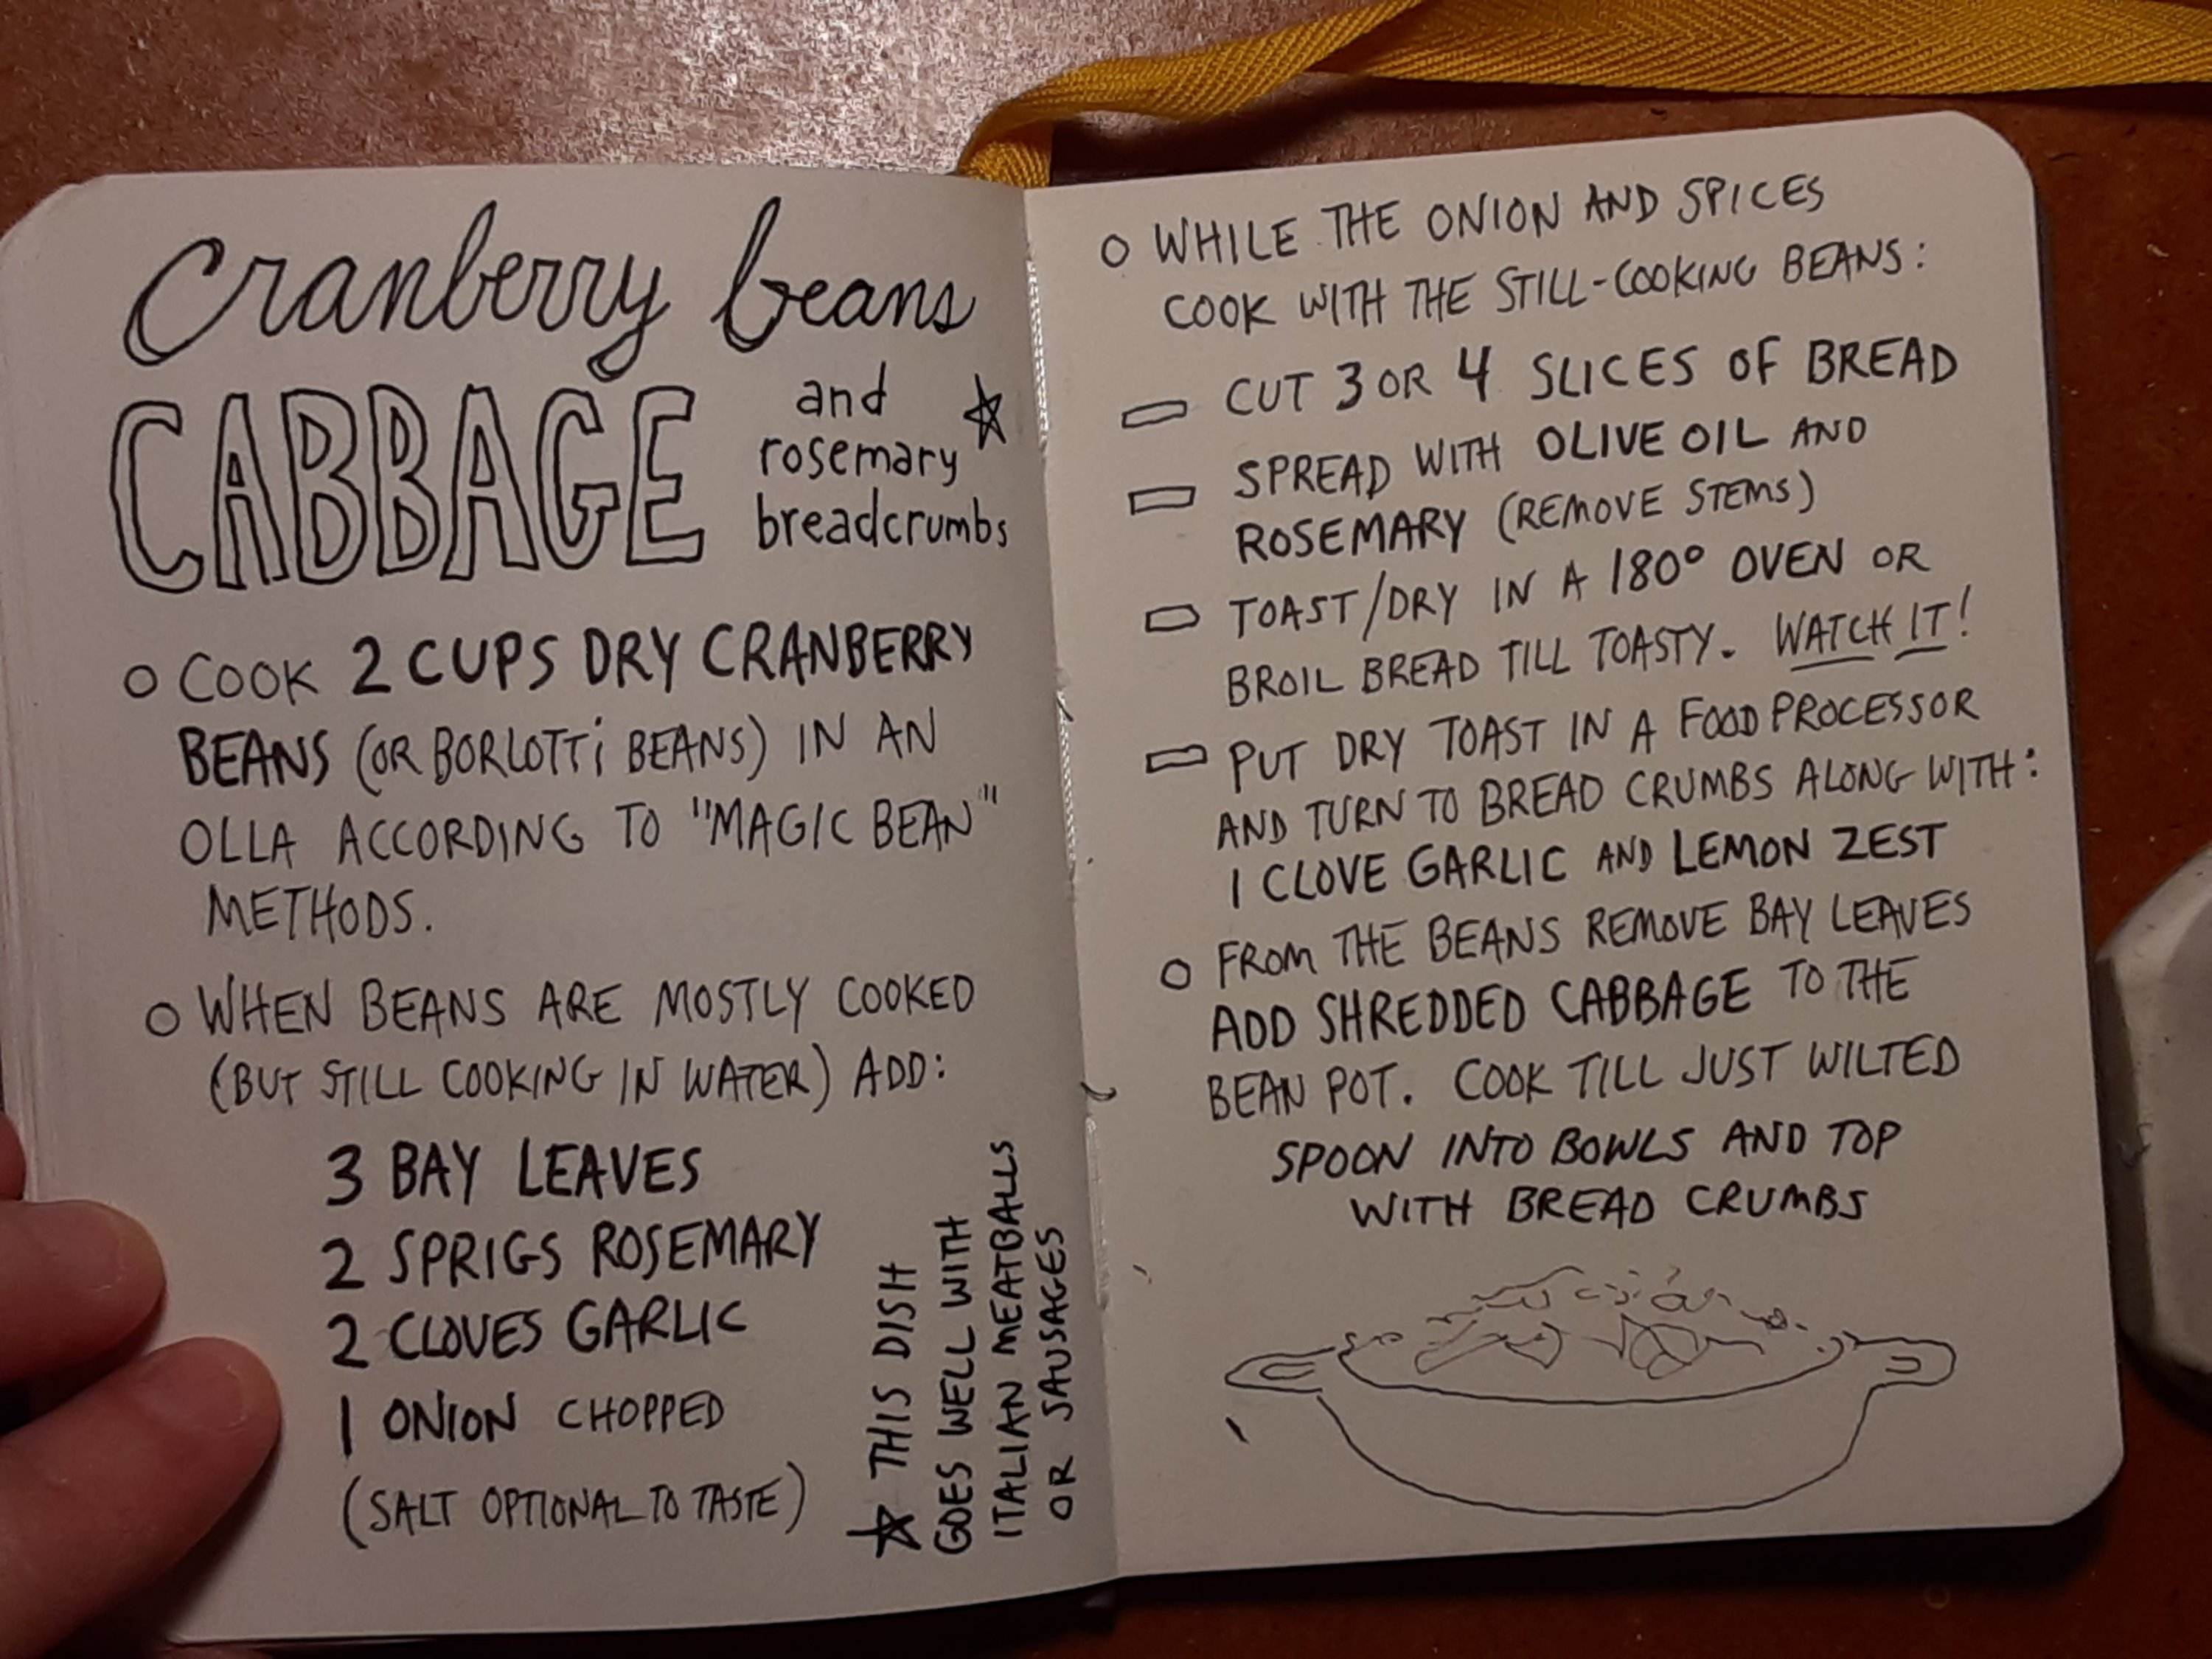 Cranberry beans
CABBAGE
and
rosemary
breadcrumbs
COOK 2 CUPS DRY CRANBERRY
BEANS (OR BORLOTTi BEANS) IN AN
OLLA ACCORDING TO "MAGIC BEAN"
METHODS.
WHEN BEANS ARE MOSTLY COOKED
(BUT STILL COOKING IN WATER) ADD:
3 BAY LEAVES
2 SPRIGS ROSEMARY
2 CLOVES GARLIC
1 ONION CHOPPED
(SALT OPTIONAL TO TASTE)
THIS DISH
GOES WELL WITH
ITALIAN MEATBALLS
OR SAUSAGES
WHILE THE ONION AND SPICES
COOK WITH THE STILL-COOKING BEANS:
CUT 3 OR 4 SLICES OF BREAD
SPREAD WITH OLIVE OIL AND
ROSEMARY (REMOVE STEMS)
TOAST/DRY IN A 180° OVEN OR
BROIL BREAD TILL TOASTY. WATCH IT!
PUT DRY TOAST IN A FOOD PROCESSOR
AND TURN TO BREAD CRUMBS ALONG WITH:
1 CLOVE GARLIC AND LEMON ZEST
FROM THE BEANS REMOVE BAY LEAVES
ADD SHREDDED CABBAGE TO THE
BEAN POT. COOK TILL JUST WILTED
SPOON INTO BOWLS AND TOP
WITH BREAD CRUMBS